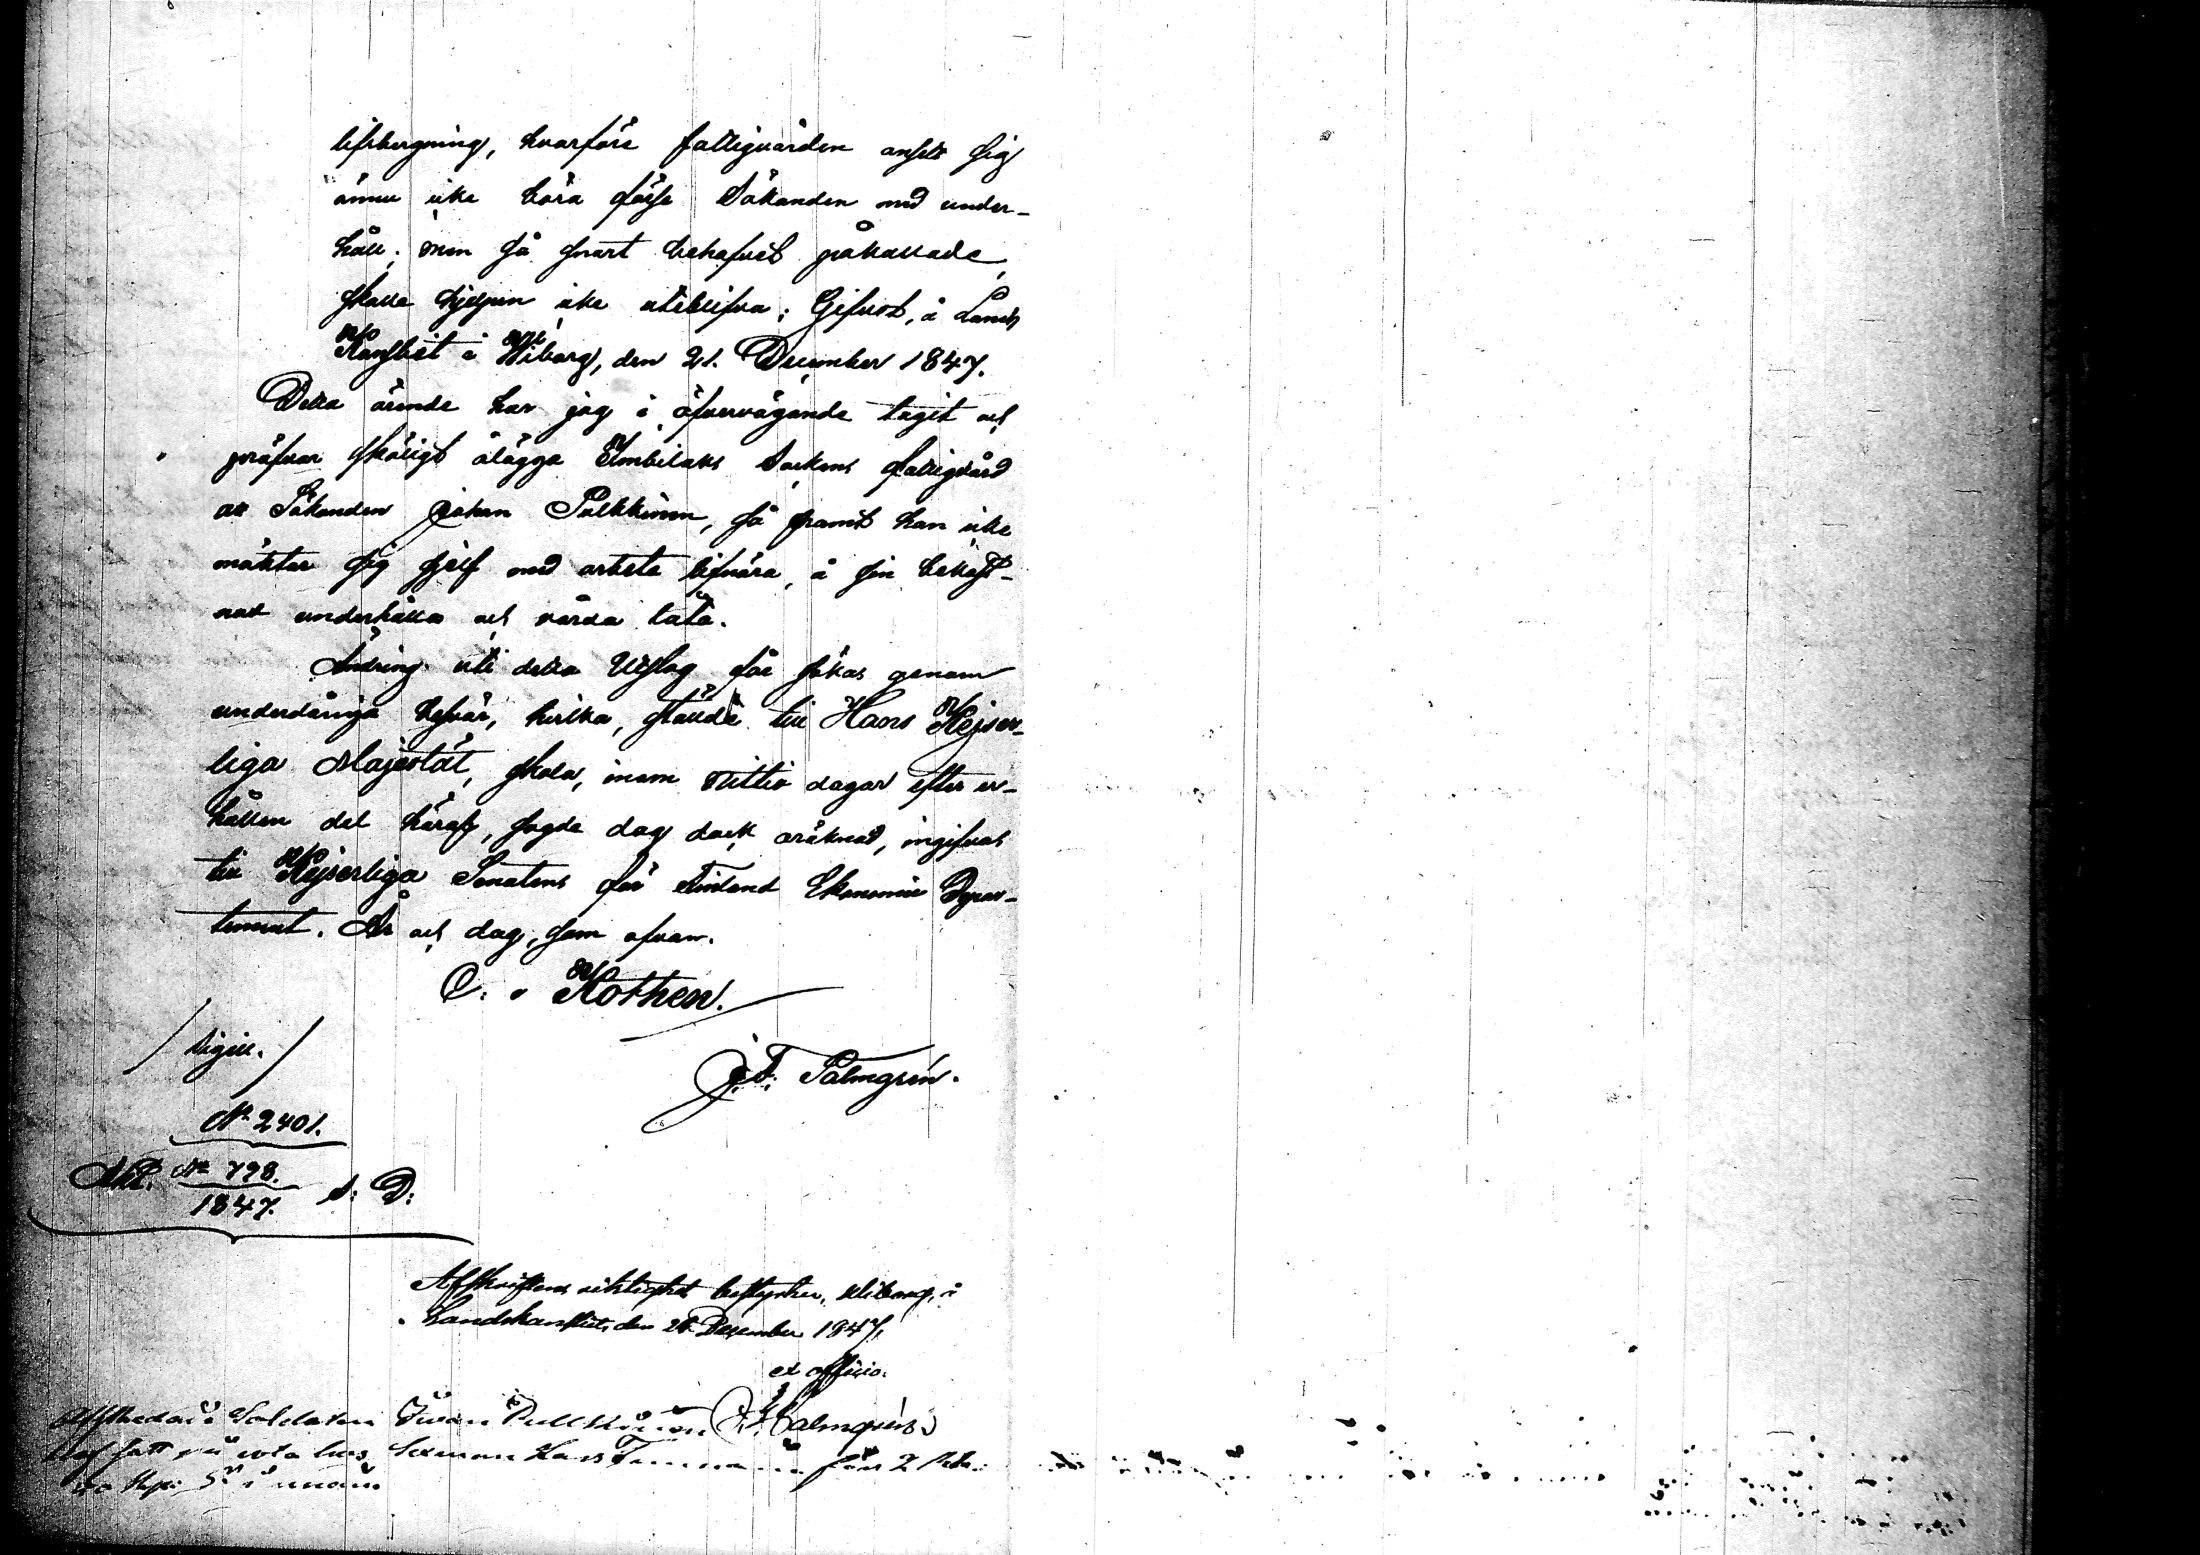 lifsbergning, hvarföre fattigvården ansett sig
ännu icke böra förse Sökanden med under-
håll; men så snart behofvet påkallade,
skulle hjelpen icke utiblifva; Gifvet, å Lands
Kansliet i Wiborg, den 21. December 1847.
Detta ärende har jag i öfvervägande tagit och
pröfvar skäligt ålägga Embilaks Sockens fattigvård
att Sökanden Johan Pulkkinen, så framt han icke
mäktar sig sjelf med arbete lifnära, å sin bekost-
nad underhålla och vårda låta.
Ändring uti detta Utslag får sökas genom
underdåniga besvär, hvilka, stälde till Hans Kejser-
liga Majestät, skola, inom Sittio dagar efter er-
hållen del häraf, sagde dag dock oräknad, ingifvas
till Kejserliga Senatens för Finland Ekonomie Depar-
tement. År och dag, som ofvan.
C. v Kothen.
/ Sigill. /
J. F. Palmgren.
No 2401.
Akt. No 798.
1847. S. D:
Afskriftens riktighet bestyrker, Wiborg, i
Landskansliet, den 21 December 1847,
ex officio.
Afskedade Soldaten Iwan Pullkinen J. F. Palmgren
fått på rota hos Hans för 2